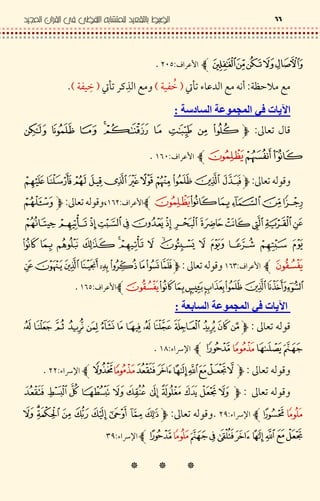 ٦٦ الضبط بالتقعيد للمتشابه اللفظي في القرآن المجيد
وَالْآصَالِ وَلَا تَكُن مِّنَ الْغَافِلِينَ ﴾ الأعراف:٢٠٥ .
مع ملاحظة: أنه مع الدعاء تأتي ( خُفية ) ومع الذِكر تأتي ( خِيفة ).
الآيات في المجموعة السادسة :
قال تعالى: ﴿ كُلُوا مِن طَيِّبَاتِ مَا رَزَقْنَاكُمْ وَمَا ظَلَمُونَا وَلَٰكِن
كَانُوا أَنفُسَهُمْ يَظْلِمُونَ ﴾ الأعراف:١٦٠ .
وقوله تعالى: ﴿ فَبَدَّلَ الَّذِينَ ظَلَمُوا مِنْهُمْ قَوْلًا غَيْرَ الَّذِي قِيلَ لَهُمْ فَأَرْسَلْنَا عَلَيْهِمْ
رِجْزًا مِّنَ السَّمَاءِ بِمَا كَانُوا يَظْلِمُونَ ﴾ الأعراف:١٦٢،وقوله تعالى: ﴿ وَسْئَلْهُمْ
عَنِ الْقَرْيَةِ الَّتِي كَانَتْ حَاضِرَةَ الْبَحْرِ إِذْ يَعْدُونَ فِي السَّبْتِ إِذْ تَأْتِيهِمْ حِيتَانُهُمْ
يَوْمَ سَبْتِهِمْ شُرَّعًا وَيَوْمَ لَا يَسْبِتُونَ لَا تَأْتِيهِمْ كَذَٰلِكَ نَبْلُوهُم بِمَا كَانُوا
يَفْسُقُونَ ﴾ الأعراف:١٦٣ وقوله تعالى: ﴿ فَلَمَّا نَسُوا مَا ذُكِّرُوا بِهِ أَنجَيْنَا الَّذِينَ يَنْهَوْنَ عَنِ
السُّوءِ وَأَخَذْنَا الَّذِينَ ظَلَمُوا بِعَذَابٍ بَئِيسٍ بِمَا كَانُوا يَفْسُقُونَ ﴾ الأعراف:١٦٥ .
الآيات في المجموعة السابعة :
قوله تعالى : ﴿ مَّن كَانَ يُرِيدُ الْعَاجِلَةَ عَجَّلْنَا لَهُ فِيهَا مَا نَشَاءُ لِمَن نُّرِيدُ ثُمَّ جَعَلْنَا لَهُ
جَهَنَّمَ يَصْلَاهَا مَذْمُومًا مَّدْحُورًا ﴾ الإسراء:١٨ .
وقوله تعالى : ﴿ لَّا تَجْعَلْ مَعَ اللَّهِ إِلَٰهًا آخَرَ فَتَقْعُدَ مَذْمُومًا مَّخْذُولًا ﴾ الإسراء:٢٢ .
وقوله تعالى : ﴿ وَلَا تَجْعَلْ يَدَكَ مَغْلُولَةً إِلَىٰ عُنُقِكَ وَلَا تَبْسُطْهَا كُلَّ الْبَسْطِ فَتَقْعُدَ
مَلُومًا مَّحْسُورًا ﴾ الإسراء:٢٩ .وقوله تعالى: ﴿ ذَٰلِكَ مِمَّا أَوْحَىٰ إِلَيْكَ رَبُّكَ مِنَ الْحِكْمَةِ وَلَا
تَجْعَلْ مَعَ اللَّهِ إِلَٰهًا آخَرَ فَتُلْقَىٰ فِي جَهَنَّمَ مَلُومًا مَّدْحُورًا ﴾ الإسراء:٣٩
* * *